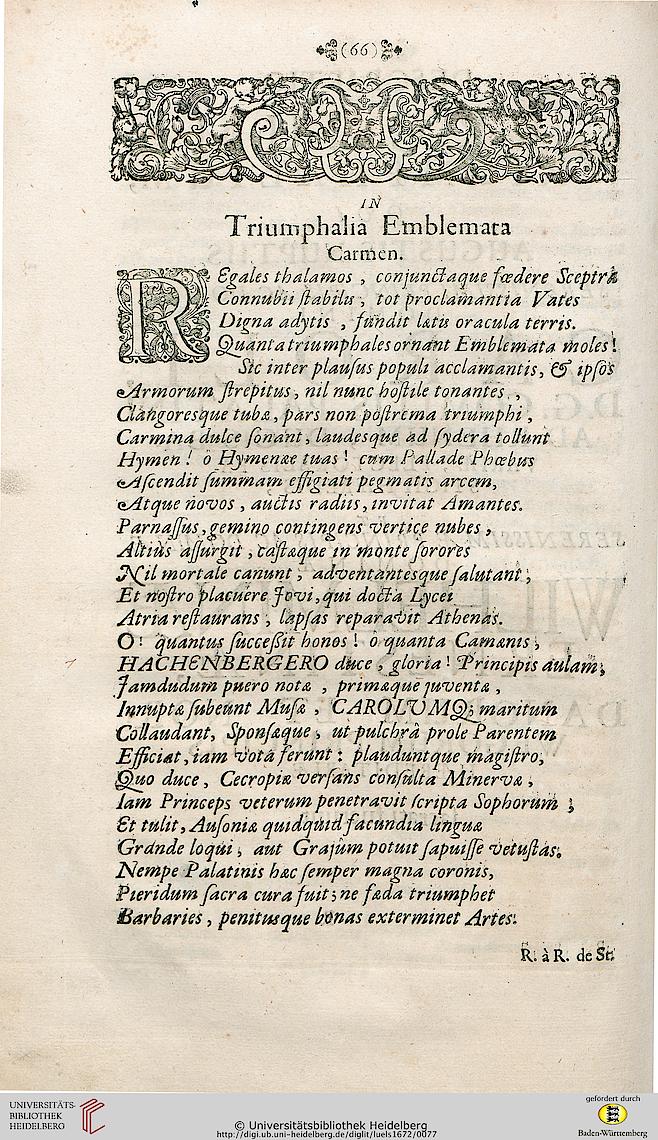 (66)
IN
Triumphalia Emblemata
Carmen.
REgales thalamos, conjunctaque fœdere Sceptra
Connubii ſtabilis, tot proclamantia Vates
Digna adytis, fundit lætis oracula terris.
Quanta triumphales ornant Emblemata moles!
Sic inter plauſus populi acclamantis, & ipſos
Armorum ſtrepitus, nil nunc hoſtile tonantes,
Clangoresque tubæ, pars non poſtrema triumphi,
Carmina dulce ſonant, laudesque ad ſydera tollunt
Hymen! ô Hymenæe tuas! cum Pallade Phœbus
Aſcendit ſummam effigiati pegmatis arcem,
Atque novos, auctis radiis, invitat Amantes.
Parnaſſus, gemino contingens vertice nubes,
Altiùs aſſurgit, caſtæque in monte ſorores
Nil mortale canunt, adventantesque ſalutant;
Et noſtro placuêre Jovi, qui docta Lycei
Atria reſtaurans, lapſas reparavit Athenas.
O! quantus ſucceßit honos! ô quanta Camænis,
HACHENBERGERO duce, gloria! Principis aulam,
Jamdudum puero notæ, primæque juventæ,
Innuptæ ſubeunt Muſæ, CAROLUMQ; maritum
Collaudant, Sponſæque, ut pulchrâ prole Parentem
Efficiat, jam vota ferunt: plauduntque magiſtro,
Quo duce, Cecropiæ verſans conſulta Minervæ,
Iam Princeps veterum penetravit ſcripta Sophorum;
Et tulit, Auſoniæ quidquid facundia linguæ
Grande loqui, aut Grajûm potuit ſapuiſſe vetuſtas.
Nempe Palatinis hæc ſemper magna coronis,
Pieridum ſacra cura fuit; ne fæda triumphet
Barbaries, penitusque bonas exterminet Artes.
R. à R. de St.
UNIVERSITÄTS-
BIBLIOTHEK
HEIDELBERG
© Universitätsbibliothek Heidelberg
http://digi.ub.uni-heidelberg.de/diglit/luels1672/0077
gefördert durch
Baden-Württemberg